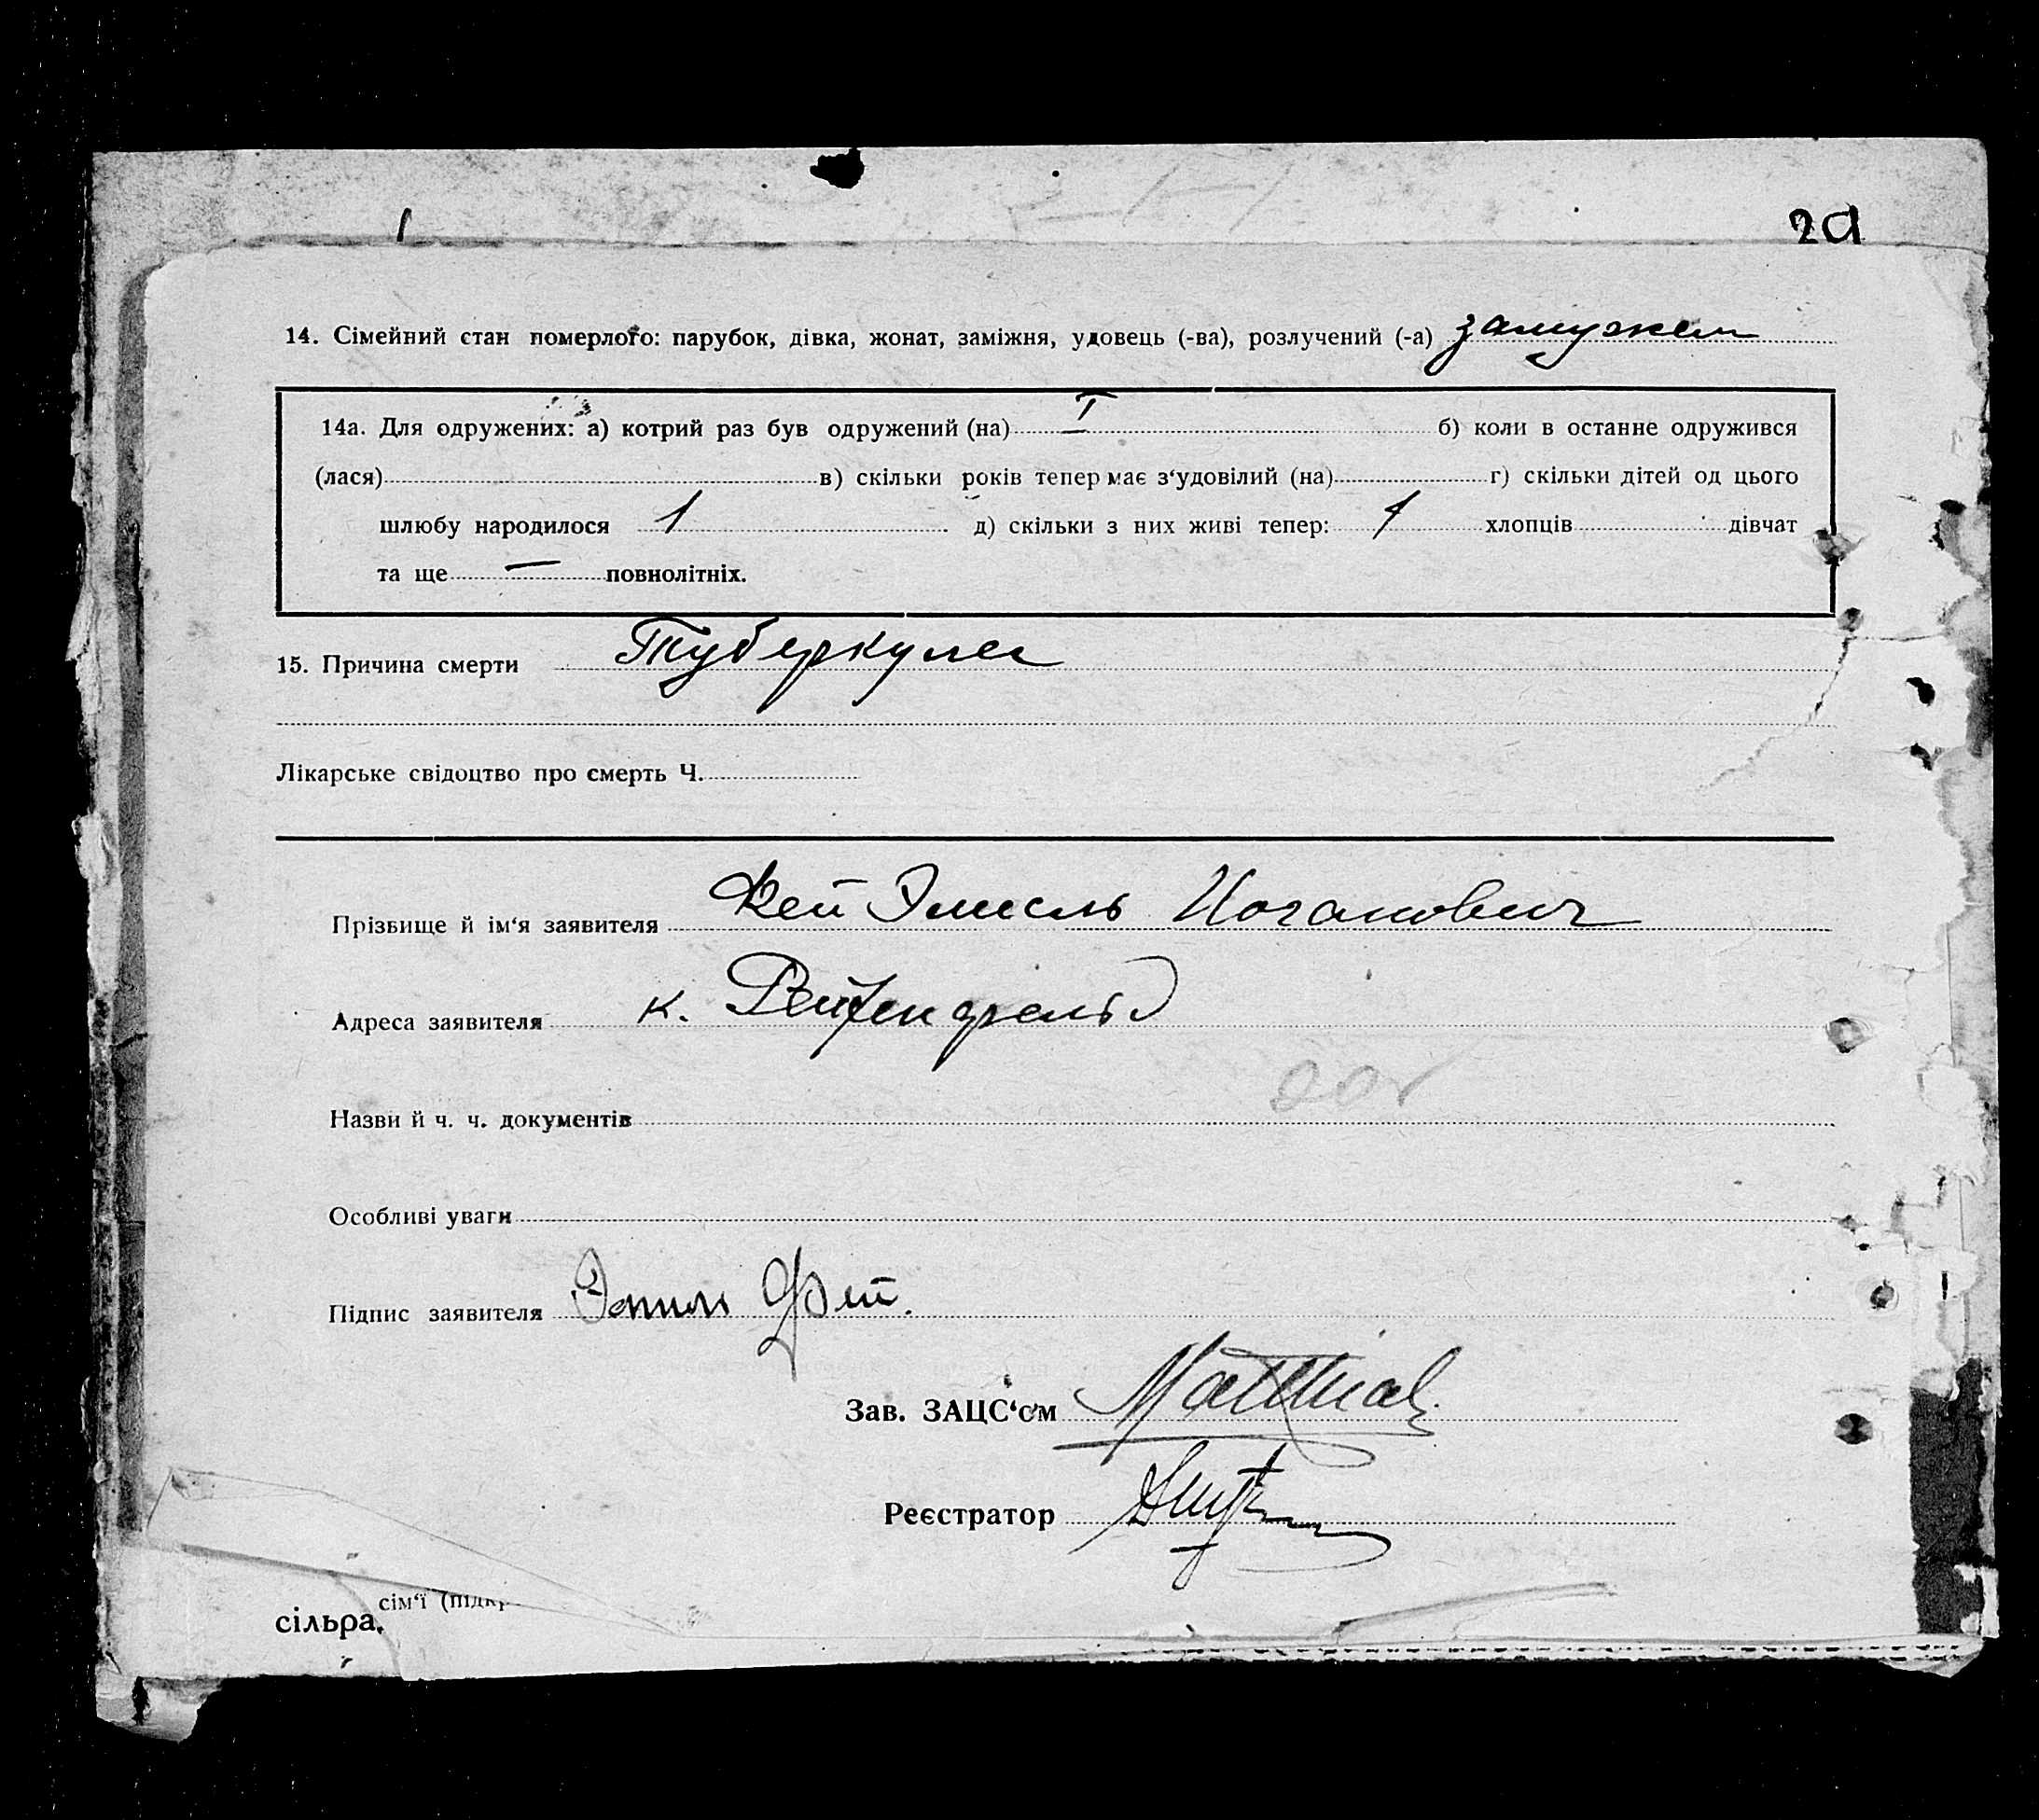 29
14. Сімейний стан померлого: парубок, дівка, жонат, заміжня, удовець (-ва), розлучений (-а) замужем
14а. Для одружених: а) котрий раз був одружений (на) I б) коли в останнє одружився
(лася) в) скільки років тепер має з‘удовілий (на) г) скільки дітей од цього
шлюбу народилося 1 д) скільки з них живі тепер: 1 хлопців дівчат
та ще — повнолітніх.
15. Причина смерти Туберкулез
Лікарське свідоцтво про смерть Ч.
Прізвище й ім‘я заявителя Фей Эмиль Иоганович
Адреса заявителя к.
Назви й ч. ч. документів
Особливі уваги
Підпис заявителя Эмиль Фей.
Зав. ЗАЦС‘ом
Реєстратор
сім‘ї
сільра